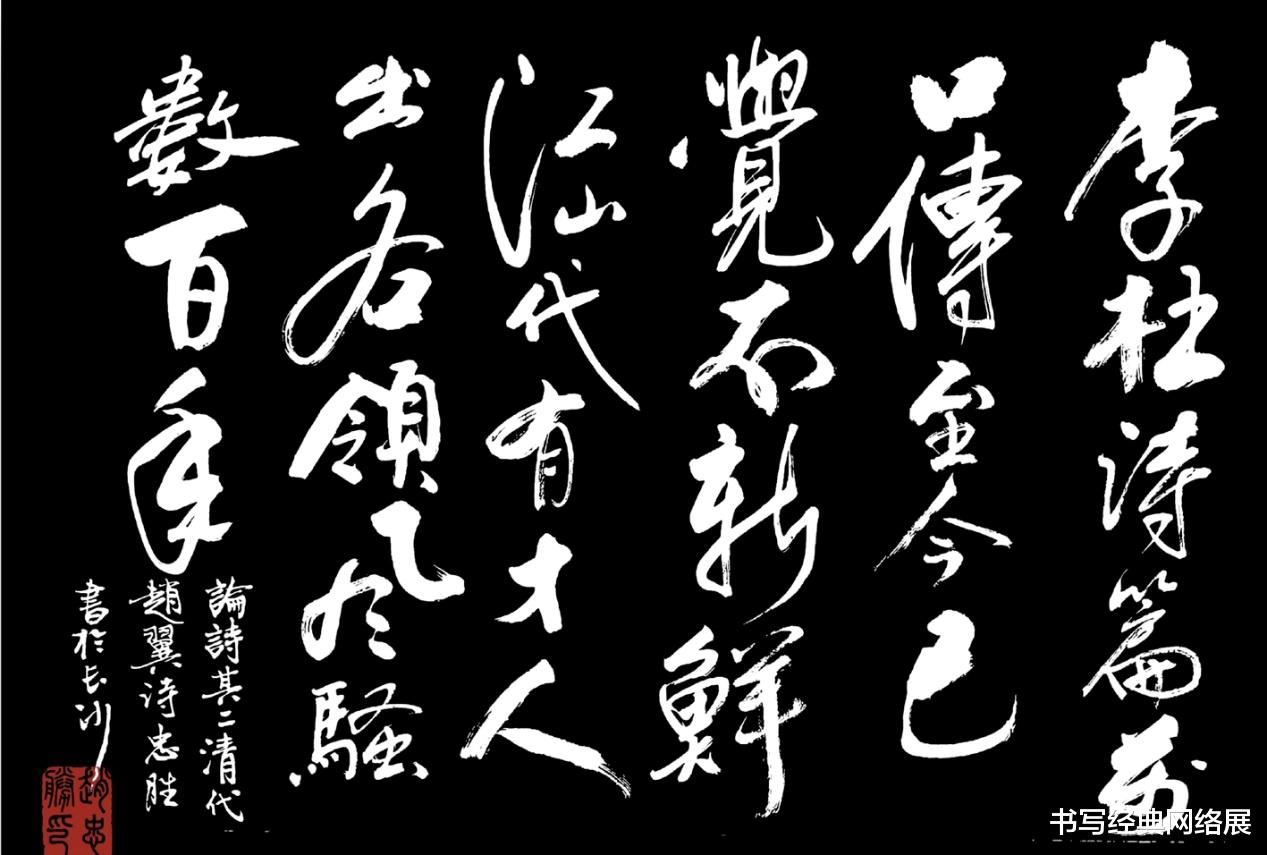 李杜诗篇萬
口傳至今已
覺不新鮮
江山代有才人
出各領风騷
數百年
論詩其二清代
趙翼诗忠胜
書於长沙
趙忠
勝印
书写经典网络展